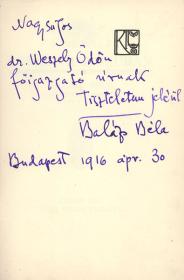 Nagyságos
dr. Weszely Ödön
főigazgató úrnak
Tiszteletem jeléül
Balázs Béla
Budapest 1916 ápr. 30